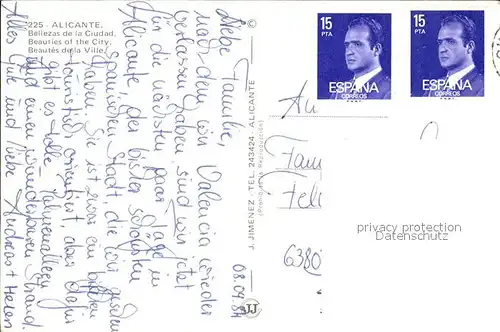 225 - ALICANTE.
Bellezas de la Ciudad.
Beauties of the City.
Beautés de la Ville.
©
J. JIMENEZ - TEL. 243424. ALICANTE
(Prohibida la Reproducción)
JJ
08.09.84
Liebe Familie,
nachdem wir Valencia wieder
verlassen haben, sind wir jetzt
für die nächsten paar Tage in
Alicante, der bisher schönsten
spanischen Stadt, die wir gesehen
haben. Sie ist zwar ein bißchen
touristisch orientiert, aber dafür
gibt es tolle Palmenalleen
und einen wunderbaren Strand.
Alles Gute und Liebe Andreas + Helen
15
PTA
ESPAÑA
CORREOS
15
PTA
ESPAÑA
CORREOS
An
Fam
Fel
6380
privacy protection
www.oldthing.de